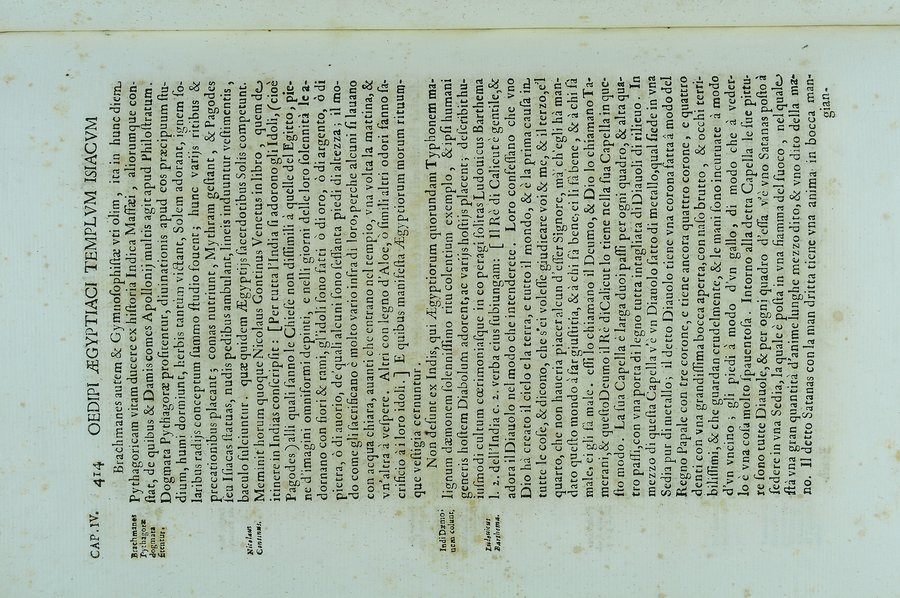 CAP. IV. 414 OEDIPI ÆGYPTIACI TEMPLVM ISIACVM
Brachmanes autem & Gymnosophistæ vti olim, ita in hunc diem
Pythagoricam vitam ducere ex historia Indica Massæi, aliorumque con-
stat, de quibus & Damis comes Apollonij multis agit apud Philostratum.
Dogmata Pythagoræ profitentur, diuinationis apud eos præcipuum stu-
dium, humi dormiunt, herbis tantum victant, Solem adorant, ignem so-
laribus radijs conceptum summo studio fouent; hunc varijs ritibus &
precationibus placant; comas nutriunt, Mythram gestant, & Pagodes
seu Isiacas statuas, nudis pedibus ambulant, lineis induuntur vestimentis,
baculo fulciuntur. quæ quidem Ægyptijs sacerdotibus Solis competunt.
Meminit horum quoque Nicolaus Continus Venetus in libro, quem de
itinere in Indias conscripsit: [Per tutta l'India si adorono gli Idoli, (cioè
Pagodes) alli quali fanno le Chiese non dissimili à quelle del Egitto, pie-
ne d'imagini omniformi depinti, e nelli giorni delle loro solennità le a-
dornano con fiori & rami, gli idoli sono fatti ò di oro, ò di argento, ò di
pietra, ò di auorio, de' quali alcuni sono sessanta piedi di altezza; il mo-
do come gli sacrificano è molto vario infra di loro, perche alcuni si lauano
con acqua chiara, auanti che entrano nel tempio, vna volta la mattina, &
vn'altra à vespere. Altri con legno d'Aloe, ò simili altri odori fanno sa-
crificio à i loro idoli.] E quibus manifesta Ægyptiorum morum rituum-
que vestigia cernuntur.
Non desunt ex Indis, qui Ægyptiorum quorundam Typhonem ma-
lignum dæmonem solennissimo ritu colentium exemplo, & ipsi humani
generis hostem Diabolum adorent, ac varijs hostijs placent; describit hu-
iusmodi cultum cœrimoniasque in eo peragi solitas Ludouicus Barthema
l. 2. dell'India c. 2. verba eius subiungam: [Il Rè di Calicut è gentile, &
adora il Diauolo nel modo che intenderete. Loro confessano che vno
Dio hà creato il cielo e la terra, e tutto il mondo, & è la prima causa in
tutte le cose, & dicono, che s'ei volesse giudicare voi & me, & il terzo, e'l
quarto, che non haueria piacer alcun d'esser Signore, ma ch'egli hà man-
dato questo mondo à far giustitia, & à chi fà bene, ei li fà bene, & à chi fà
male, ei gli fà male. essi lo chiamano il Deumo, & Dio chiamano Ta-
merani; & questo Deumo il Rè di Calicut lo tiene nella sua Capella in que-
sto modo. La sua Capella è larga duoi passi per ogni quadro, & alta qua-
tro palli, con vna porta di legno tutta intagliata di Diauoli di rilieuo. In
mezzo di questa Capella v'è vn Diauolo fatto di metallo, qual siede in vna
Sedia pur di metallo, il detto Diauolo tiene vna corona fatta à modo del
Regno Papale con tre corone, e tiene ancora quattro corone, e quattro
denti con vna grandissima bocca aperta, con naso brutto, & occhi terri-
bilissimi, & che guardan crudelmente, & le mani sono incuruate à modo
d'vn vncino; gli piedi à modo d'vn gallo, di modo che à veder-
lo è vna cosa molto spauentosa. Intorno alla detta Capella le sue pittu-
re sono tutte Diauole, & per ogni quadro d'essa v'è vno Satanas posto à
sedere in vna Sedia, la quale è posta in vna fiamma del fuoco, nel quale
stà vna gran quantità d'anime, lunghe mezzo dito, & vno dito della ma-
no. Il detto Satanas con la man dritta tiene vna anima in bocca man-
gian-
Brachmanes
Pythagoræ
dogmata
Nicolaus
Continus.
Indi Dæmo-
nem colunt,
Ludouicus
Barthema.